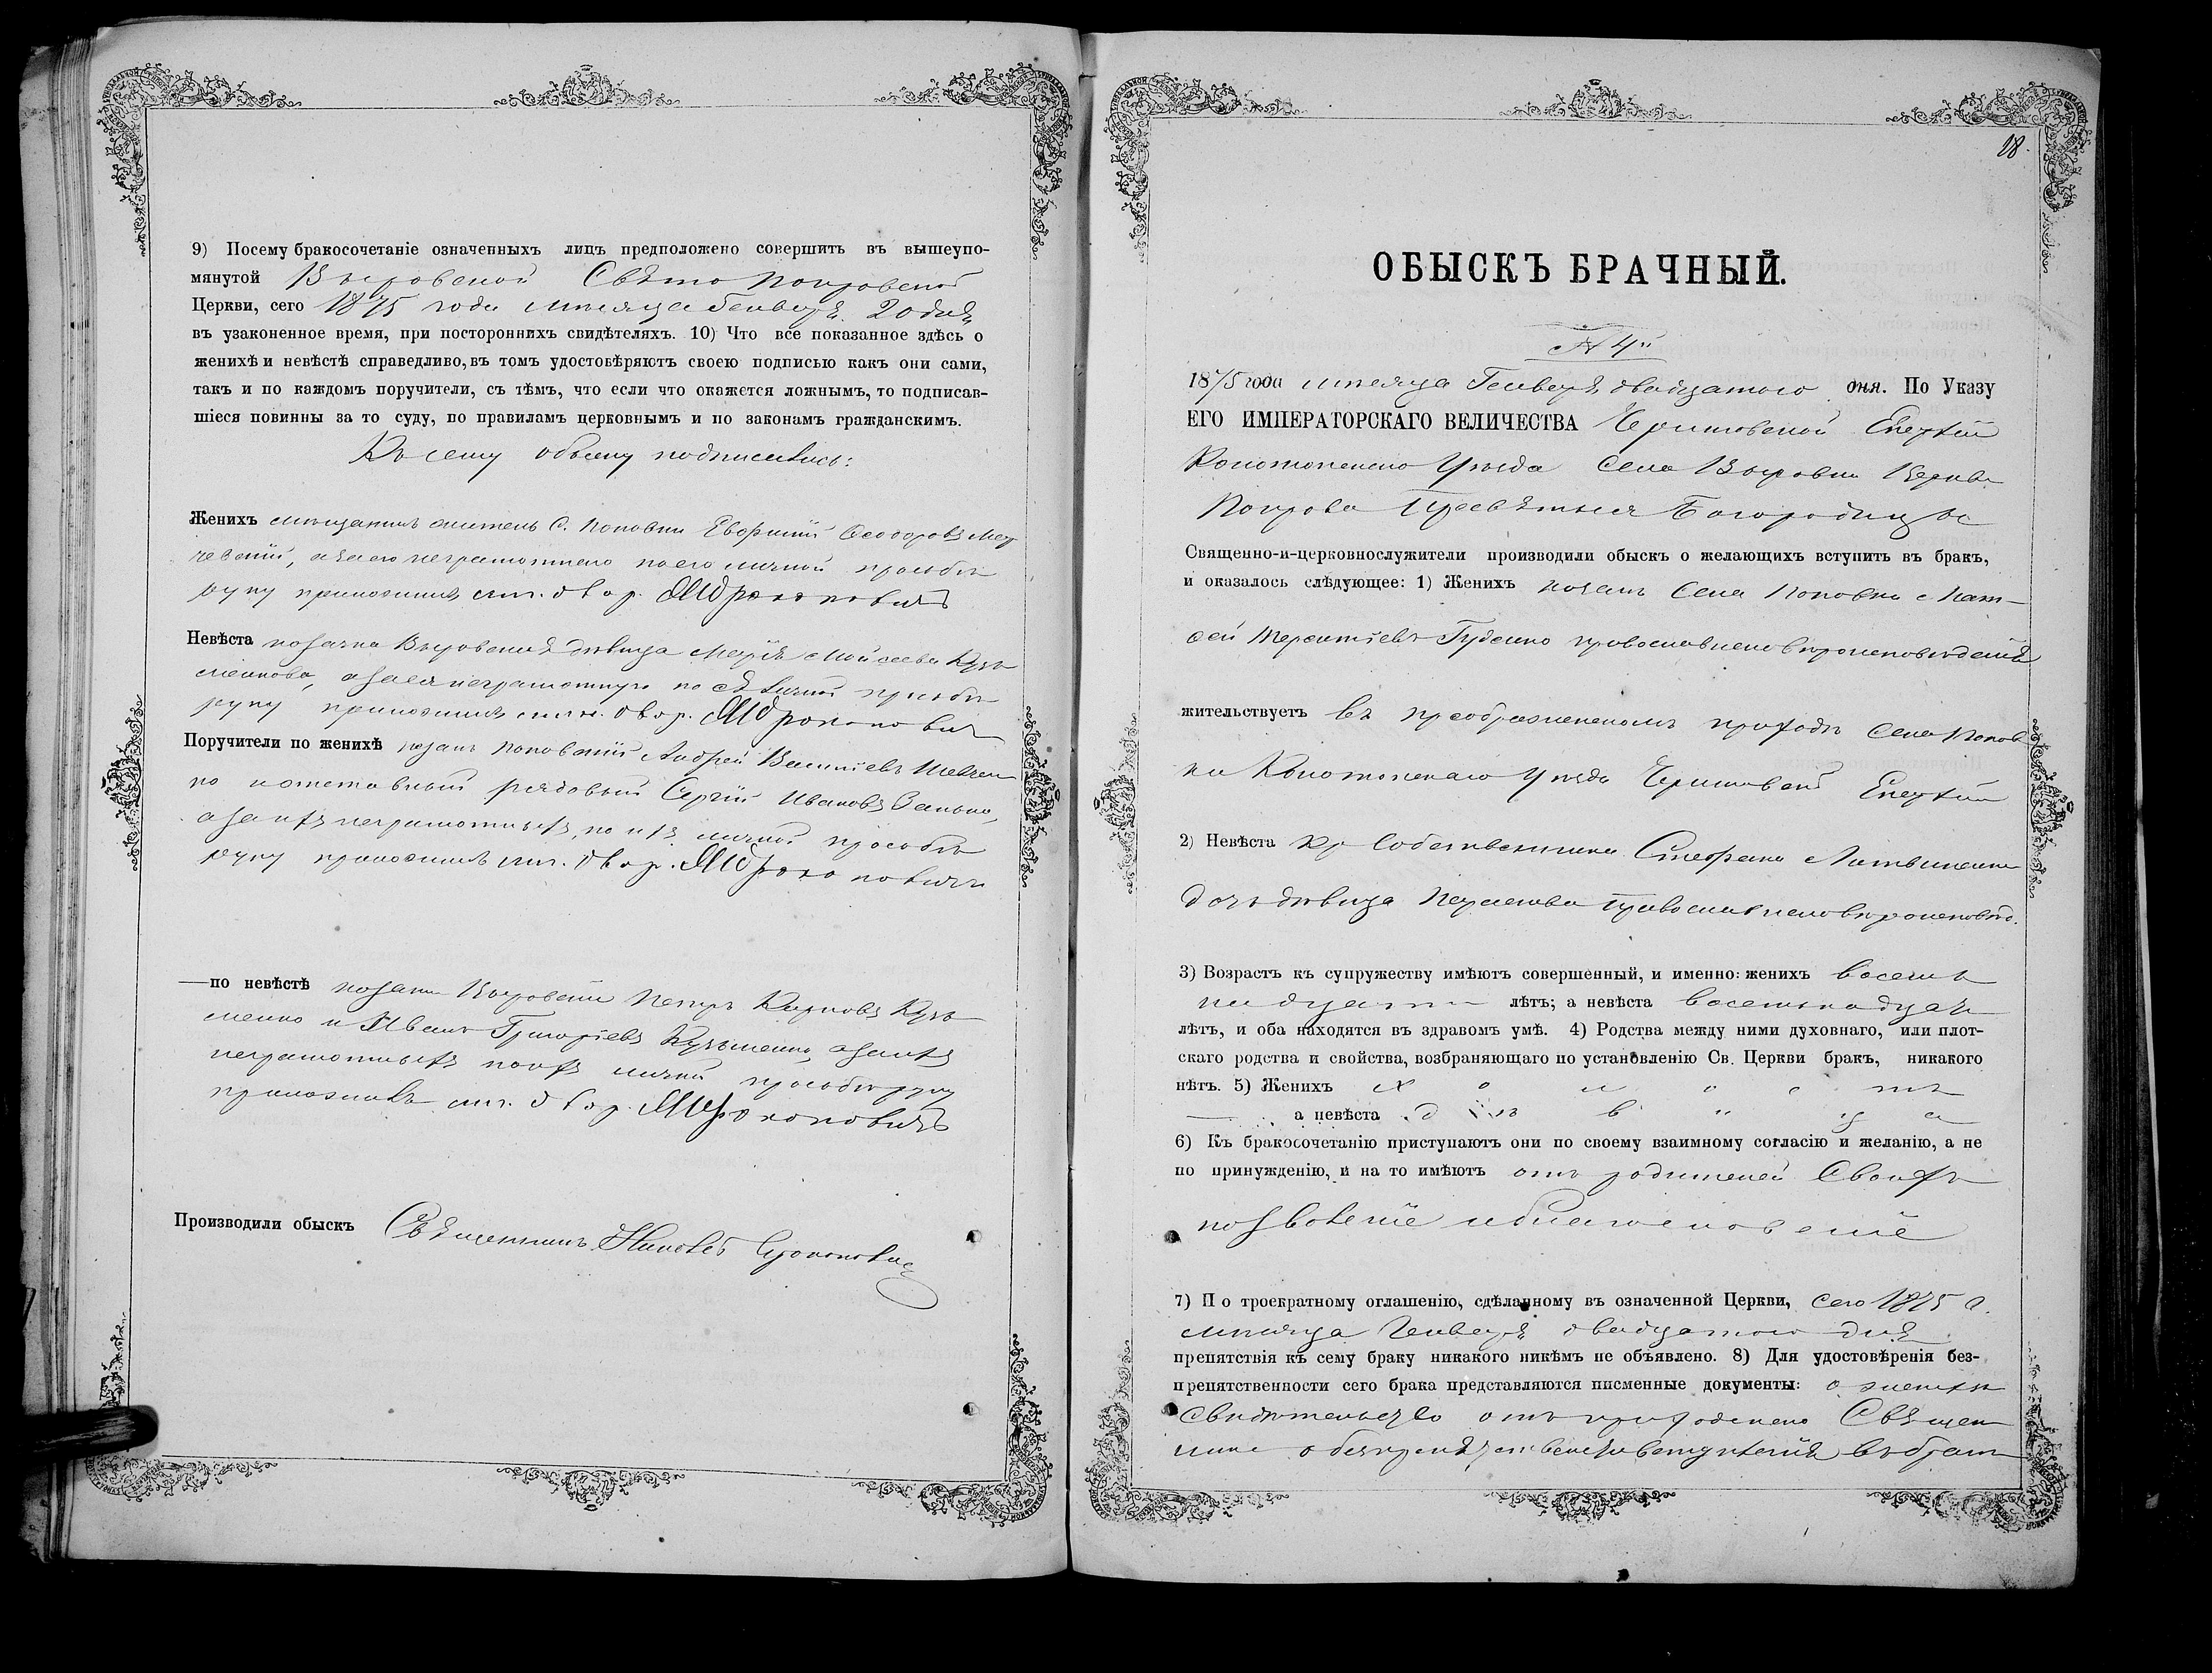 9) Посему бракосочетаніе означенныхъ лицъ предположено совершить въ вышеупо-
мянутой Выровской Свято Покровской
Церкви, сего 1875 года мѣсяца Генваря 20 дня
въ узаконенное время, при постороннихъ свидѣтеляхъ. 10) Что все показанное здѣсь о
женихѣ и невѣстѣ справедливо, въ томъ удостовѣряютъ своею подписью какъ они сами,
такъ и по каждомъ поручители, съ тѣмъ, что если что окажется ложнымъ, то подписав-
шіеся повинны за то суду, по правиламъ церковнымъ и по законамъ гражданскимъ.
Къ сему обыску подписались:
Женихъ мѣщанинъ житель С. Поповки Евфимій Ѳеодоровъ
а за его неграмотнаго по его личной прозьбѣ
руку приложилъ двор. Прокоповичъ
Невѣста козачка Выровская дѣвица Марія Моисеева Кузь
менкова, а за ея неграмотную по ея личной прозьбѣ
руку приложилъ двор. Прокоповичъ
Поручители по женихѣ козакъ Поповскій Андрей Василіевъ Шевчен
ко и отставный рядовый Сергій Ивановъ
а за ихъ неграмотныхъ, по ихъ личной прозьбѣ
руку приложилъ двор. Прокоповичъ
— по невѣстѣ козаки Выровскіи Петръ Карповъ Кузь
менко и Иванъ Григоріевъ Кузьменко, а за ихъ
неграмотныхъ по ихъ личной прозьбѣ руку
приложилъ двор. Прокоповичъ
Производили обыскъ Священникъ Іаковъ Прокоповичъ
18.
ОБЫСКЪ БРАЧНЫЙ.
№ 4й
1875 года мѣсяца Генваря двадцатого дня. По Указу
ЕГО ИМПЕРАТОРСКАГО ВЕЛИЧЕСТВА Черниговской Епархіи
Конотопского Уѣзда Села Выровки Церкви
Покрова Пресвятыя Богородицы
Священно-и-церковнослужители производили обыскъ о желающихъ вступить въ бракъ,
и оказалось слѣдующее: 1) Женихъ козакъ Села Поповки Мат-
фей Терентіевъ Гуденко православнаго вѣроисповѣданія
жительствуетъ въ преображенскомъ приходѣ Села Попов
ки Конотопскаго Уѣзда Черниговской Епархіи
2) Невѣста Кр Собственника Стефана Литвиненка
дочь дѣвица Параскева православнаго вѣроисповѣд.
3) Возрастъ къ супружеству имѣютъ совершенный, и именно: женихъ восемь
надцати лѣтъ; а невѣста восемьнадцать
лѣтъ, и оба находятся въ здравомъ умѣ. 4) Родства между ними духовнаго, или плот-
скаго родства и свойства, возбраняющаго по установленію Св. Церкви бракъ, никакого
нѣтъ. 5) Женихъ х о л о с тъ
— а невѣста д ѣ в и ц а
6) Къ бракосочетанію приступаютъ они по своему взаимному согласію и желанію, а не
по принужденію, и на то имѣютъ отъ родителей своихъ
позволеніе и благословеніе
7) По троекратному оглашенію, сдѣланному въ означенной Церкви, сего 1875 г.
мѣсяца Генваря двадцатого дня
препятствія къ сему браку никакого никѣмъ не объявлено. 8) Для удостовѣренія без-
препятственности сего брака представляются писменные документы: о женихѣ
свидѣтельство отъ приходского Священ
ника о безпрепятственномъ вступленіи въ бракъ